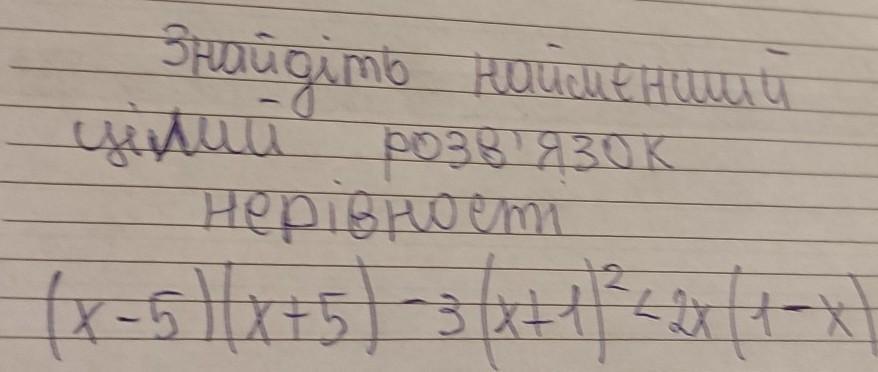 Знайдіть найменший
цілий розв'язок
нерівності
(x-5)(x+5)-3(x+1)²<2x(1-x)